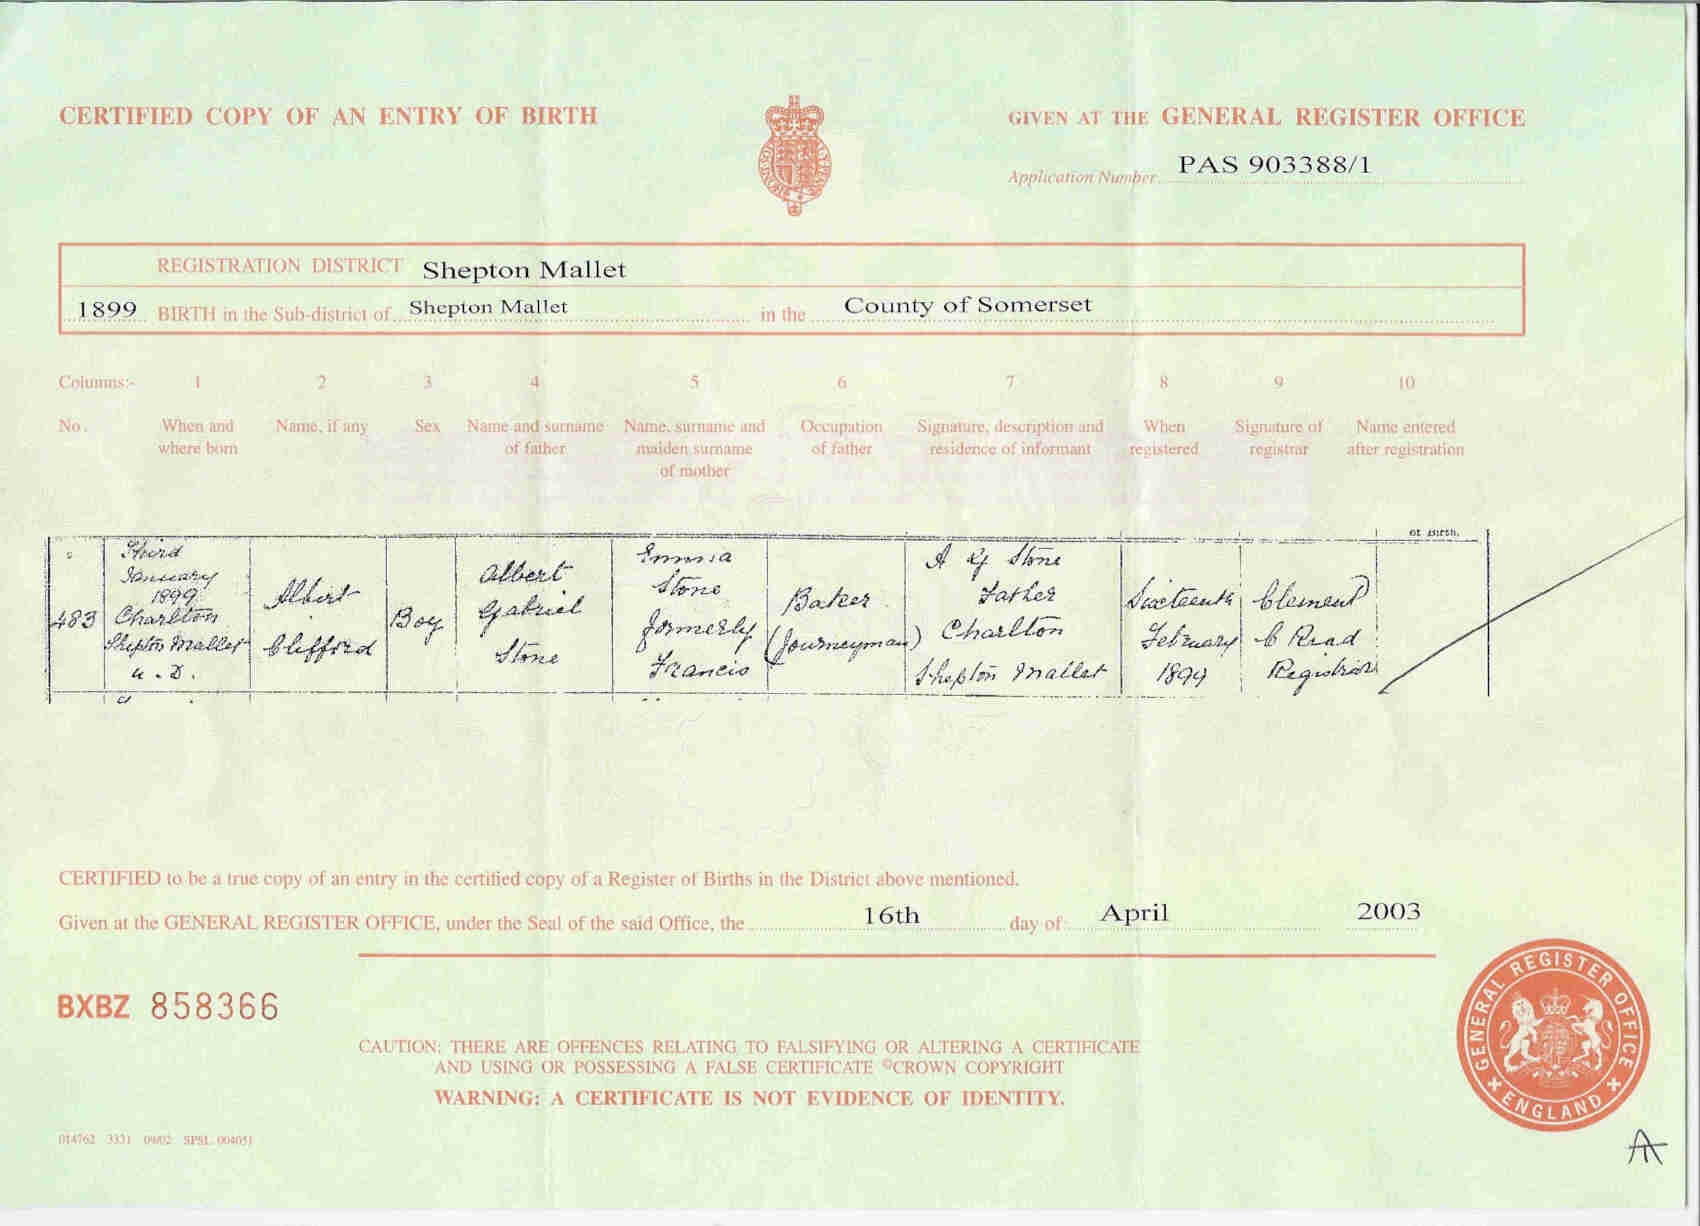 CERTIFIED COPY OF AN ENTRY OF BIRTH
GIVEN AT THE GENERAL REGISTER OFFICE
Application Number PAS 903388/1
REGISTRATION DISTRICT Shepton Mallet
1899 BIRTH in the Sub-district of Shepton Mallet in the County of Somerset
Columns:- 1 2 3 4 5 6 7 8 9 10
No.
When and
where born
Name, if any
Sex
Name and surname
of father
Name, surname and
maiden surname
of mother
Occupation
of father
Signature, description and
residence of informant
When
registered
Signature of
registrar
Name entered
after registration
of Birth.
483
Third
January
1899
Charlton
Shepton Mallet
U.D.
Albert
Clifford
Boy
Albert
Gabriel
Stone
Emma
Stone
formerly
Francis
Baker
(Journeyman)
A G Stone
Father
Charlton
Shepton Mallet
Sixteenth
February
1899
Clement
C Read
Registrar
CERTIFIED to be a true copy of an entry in the certified copy of a Register of Births in the District above mentioned.
Given at the GENERAL REGISTER OFFICE, under the Seal of the said Office, the 16th day of April 2003
BXBZ 858366
CAUTION: THERE ARE OFFENCES RELATING TO FALSIFYING OR ALTERING A CERTIFICATE
AND USING OR POSSESSING A FALSE CERTIFICATE ©CROWN COPYRIGHT
WARNING: A CERTIFICATE IS NOT EVIDENCE OF IDENTITY.
GENERAL REGISTER OFFICE
ENGLAND
014762 3331 09/02 SPSL 004051